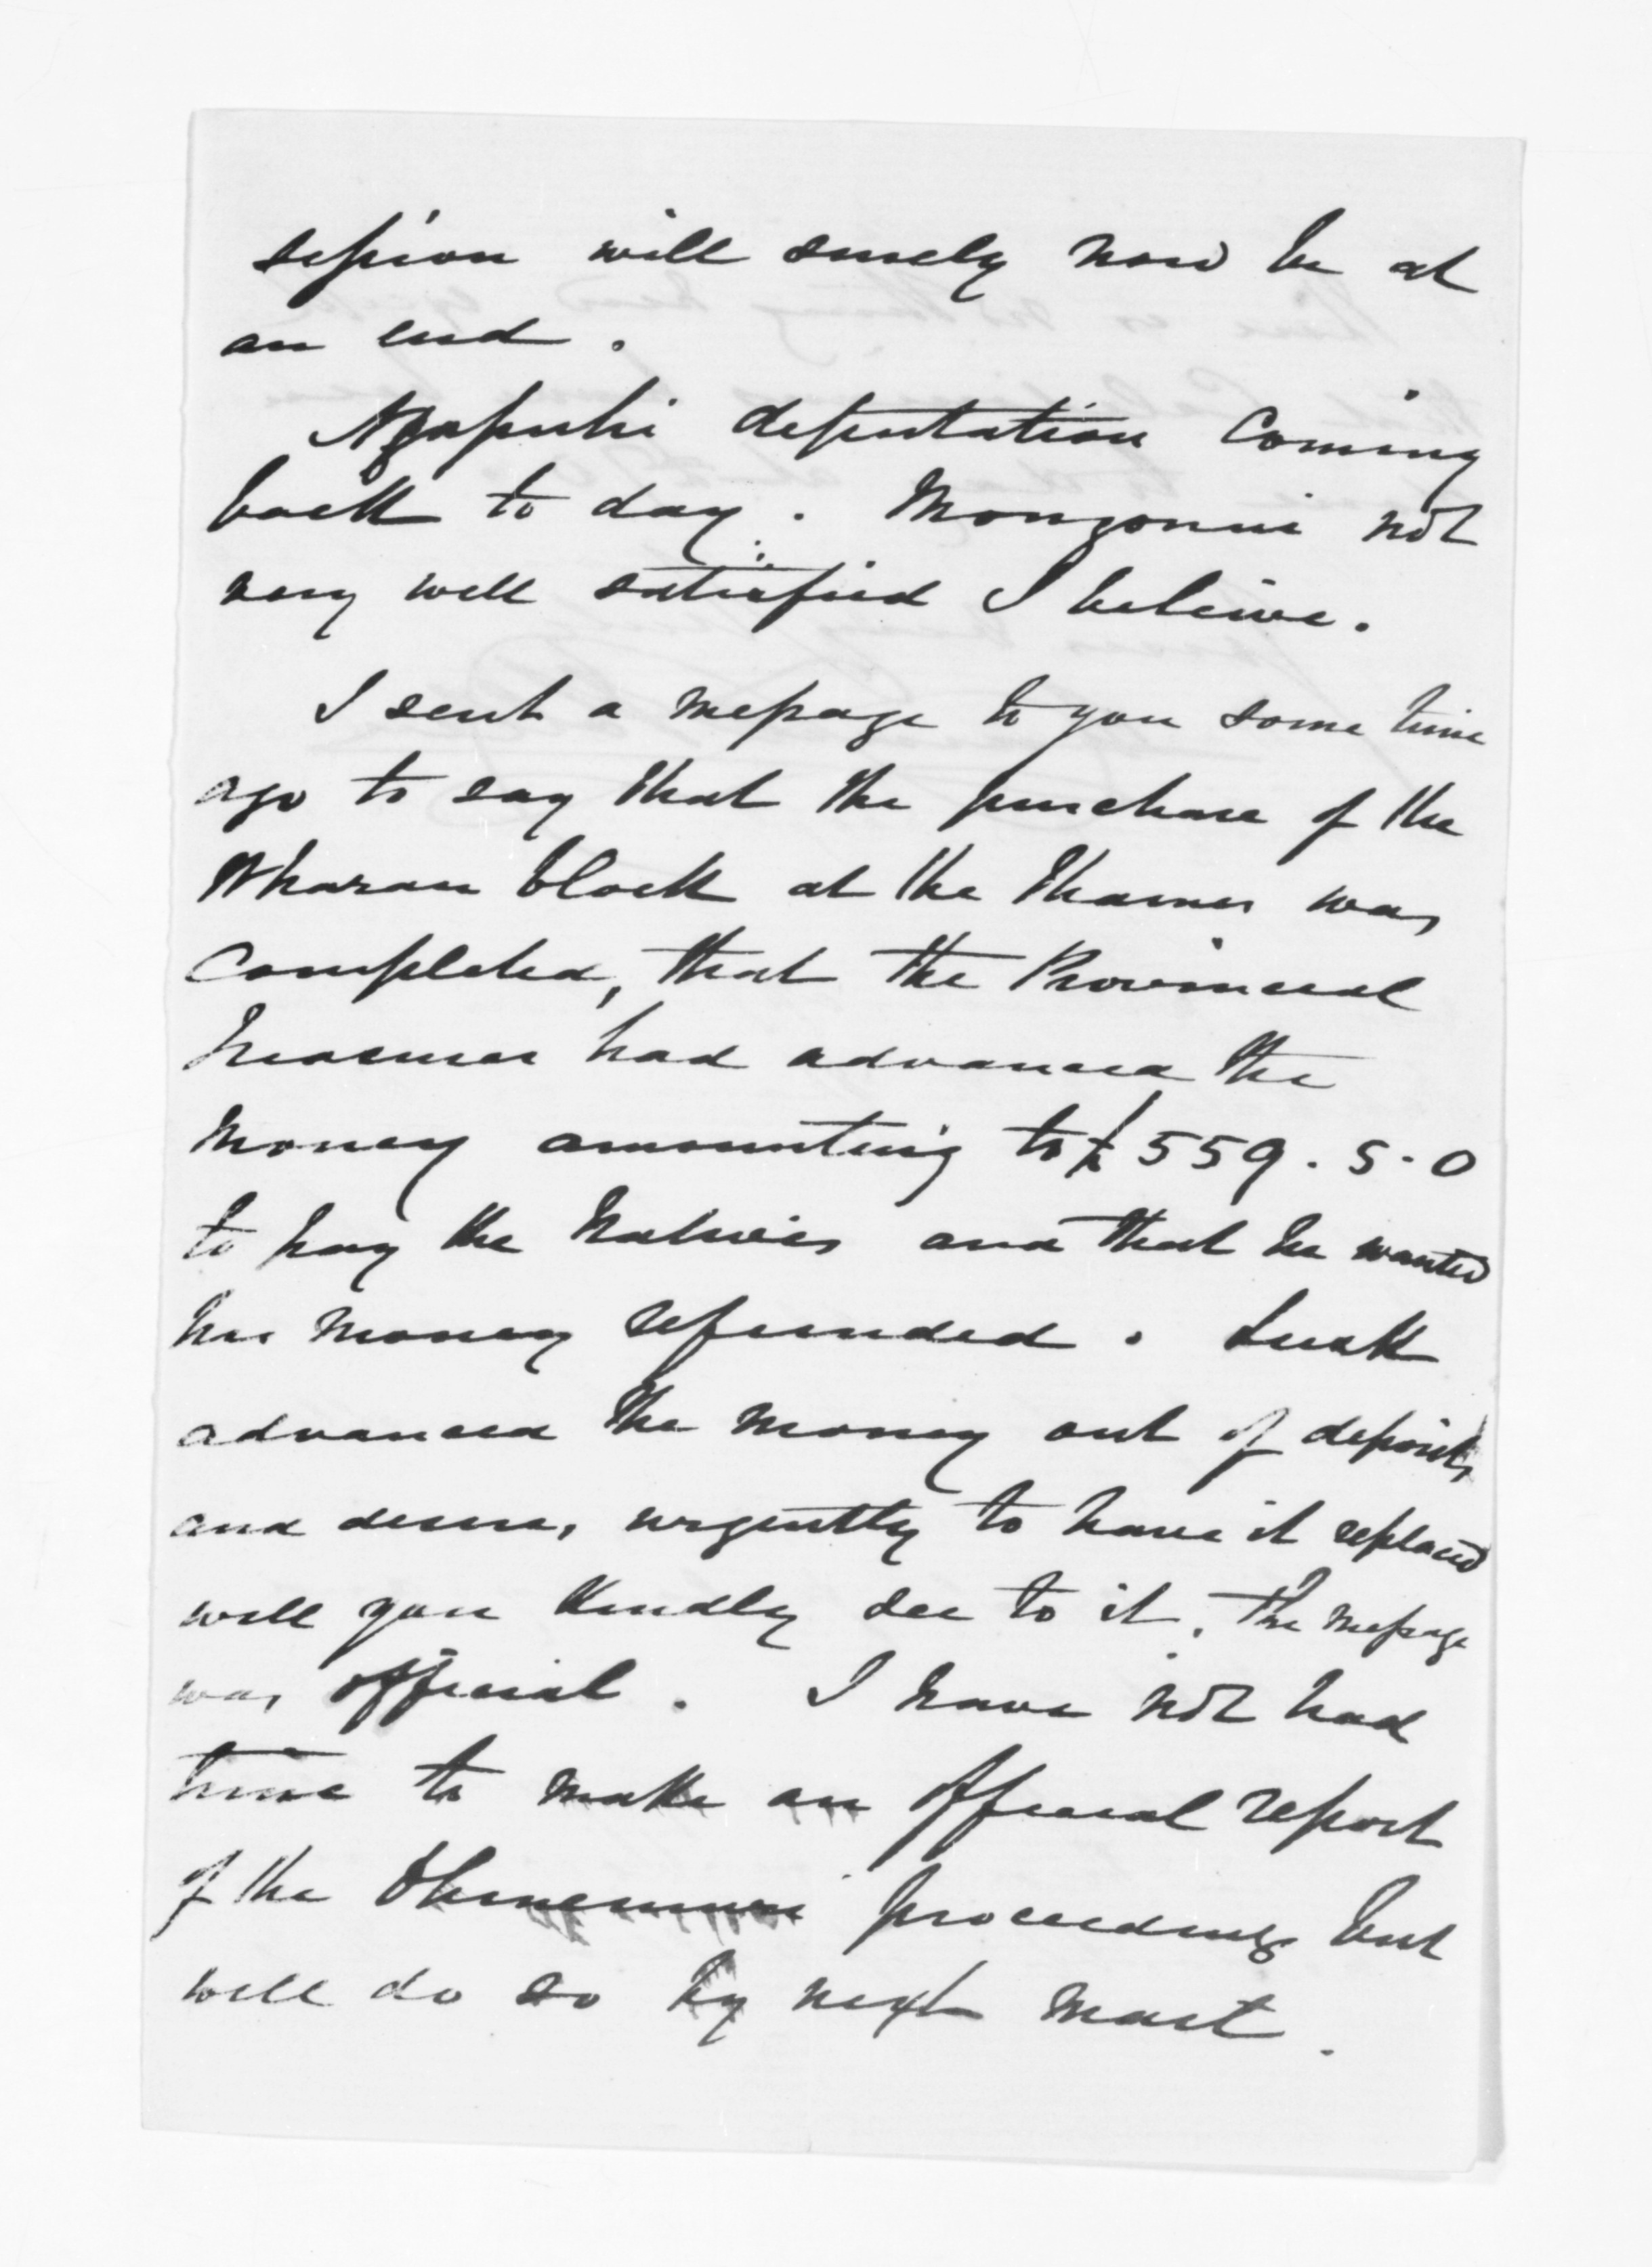 session will surely now be at
an end.
Ngapuhi deputation coming
back to day. Mongonui not
very well satisfied I believe.
I sent a message to you some time
ago to say that the purchase of the
block at the Thames was
completed, that the Provincial
Treasurer had advanced the
money amounting to £559.5.0
to pay the Natives and that he wanted
his money refunded. Lusk
advanced the money out of deposits
and desires urgently to have it replaced
will you kindly see to it. The message
was official. I have not had
time to make an official report
of the Ohinemuri proceedings but
will do so by next mail.